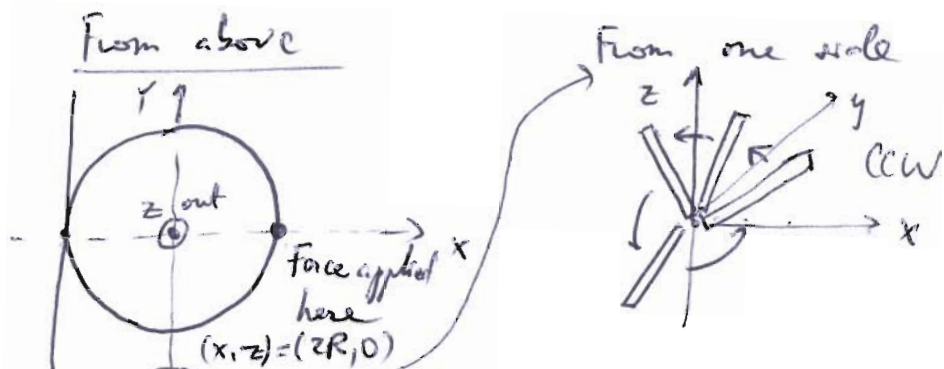 From above
Y
z out
x
Force applied
here
(x,z)=(2R,0)
From one side
z
y
CCW
x